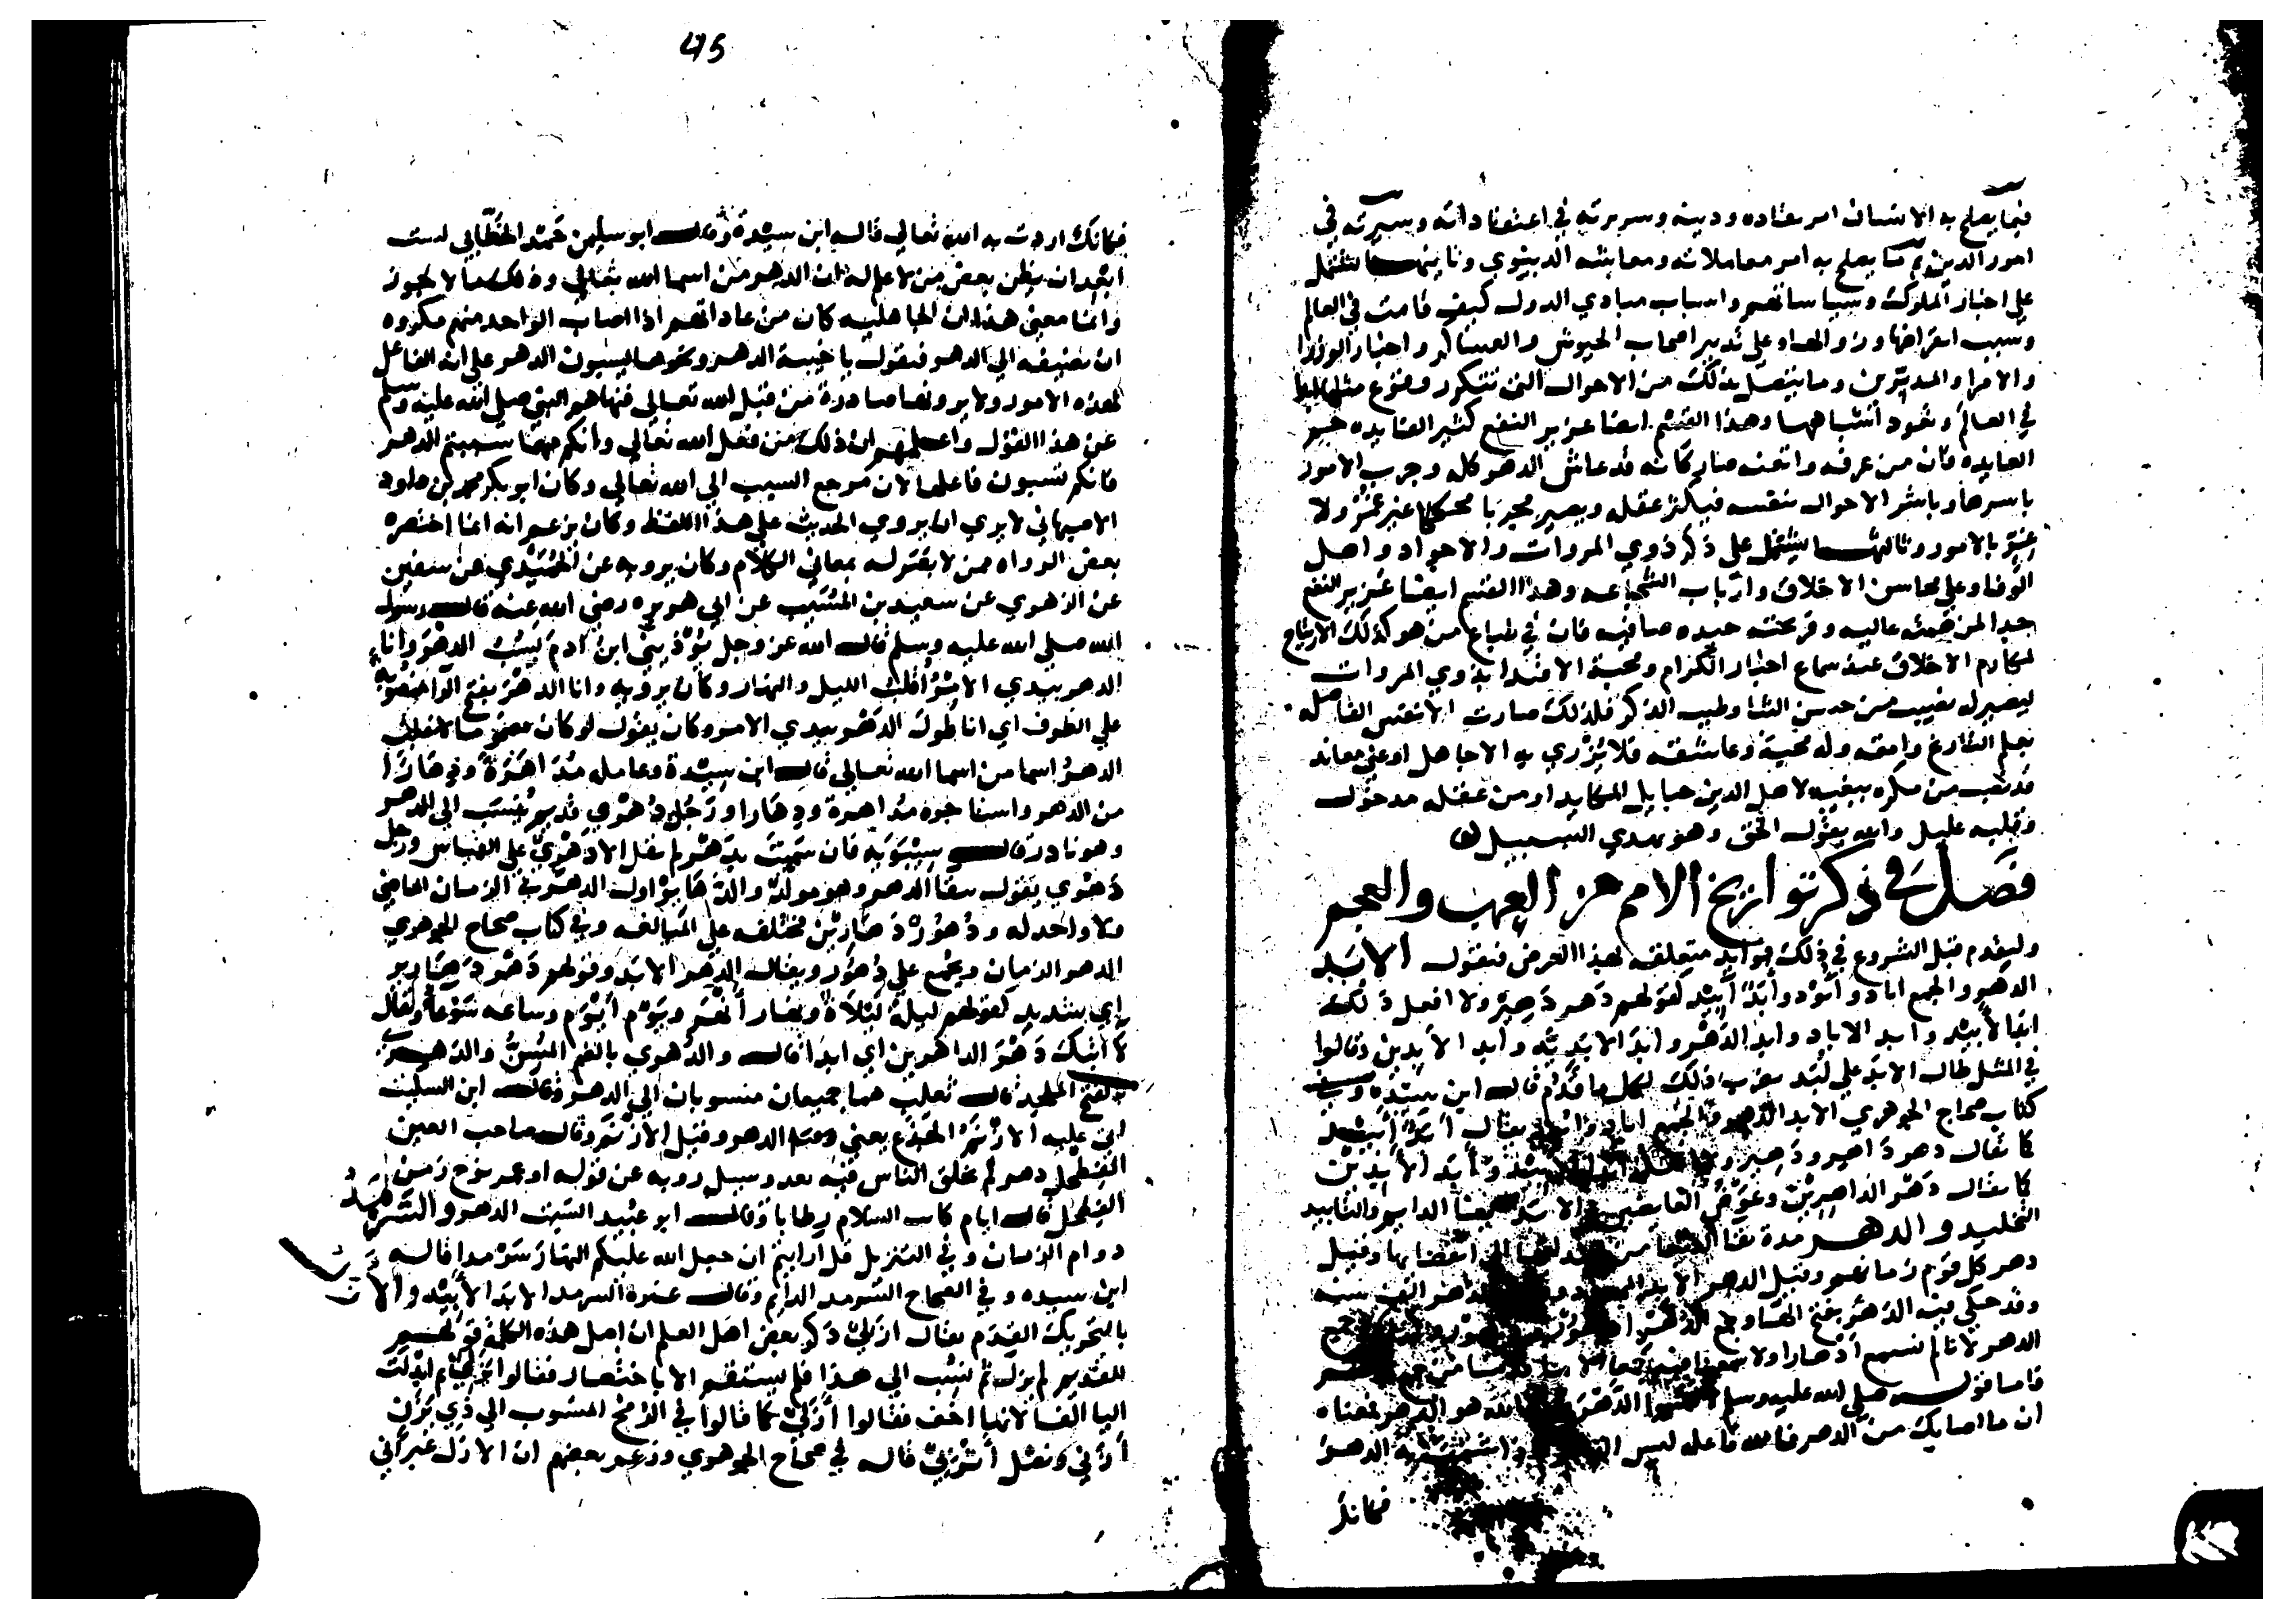 فيما يصلح به الانسان امر معاده ودينه وسريرته في اعتقاداته وسيرته في
امور الدين وما يصلح به امر معاملاته ومعايشه الدنيوي وثانيهما يشتمل
علي اخبار الملوك وسياساتهم واسباب مبادي الدول كيف قامت في العالم
وسبب انقراضها وزوالها وعلي تدبير اصحاب الجيوش والعساكر واخبار الوزرا
والامرا والمدبرين وما يتصل بذلك من الاحوال التي تتكرر وقوع مثلها ابدا
في العالم وتعود اشباهها وهذا القسم ايضا غزير النفع كثير الفايده جم
العايده فان من عرفه واتقنه صار كانه قد عاش الدهر كله وجرب الامور
باسرها وباشر الاحوال بنفسه فيكثر عقله ويصير مجربا محكما غير غمر ولا
غر بالامور وثالثها يشتمل علي ذكر ذوي المروات والاجواد واهل
الوفا وعلي محاسن الاخلاق وارباب الشجاعه وهذا القسم ايضا غزير النفع
جدا لمن همته عاليه وقريحته جيده صافيه فان في طباع من هو كذلك الارتياح
لمكارم الاخلاق عند سماع اخبار الكرام ومحبة الاقتدا بذوي المروات
ليصير له نصيب من حسن الثنا وطيب الذكر فلذلك صارت الانفس الفاضله
بعلم التاريخ وامقه وله محبة وعاشقه فلا يزري به الا جاهل او غبي معاند
قد نصب من مكره ببغيه لاهل الدين حبايل المكايد او من عقله مدخول
وقلبه عليل والله يقول الحق وهو يهدي السبيل
فصل في ذكر تواريخ الامم من العرب والعجم
وليقدم قبل الشروع في ذلك فوايد متعلقه بهذا الغرض فنقول الابد
الدهر والجمع اباد وابود وابد ابيد كقولهم دهر دهير ولا افعل ذلك
ابد الابيد وابد الاباد وابد الدهر وابد الابديه وابد الابدين وقالوا
في المثل طال الابد علي لبد يضرب ذلك لكل ما قدم قاله ابن سيده وفي
كتاب صحاح الجوهري الابد الدهر والجمع اباد وابود يقال ابد ابيد
كما يقال دهر داهير ودهير ولا افعله ابد الابيد وابد الابدين
كما يقال دهر الداهرين وعوض العايضين والابد ايضا الدايم والتابيد
التخليد والدهر مدة بقا الدنيا من ابتدايها الي انقضايها وقيل
دهر كل قوم زمانهم وقيل الدهر الابد الدهر الف سنه
وقد حكي فيه الدهر بفتح الها وجمع الدهر ادهر ودهور
الدهر لانا لم نسمع ادهارا ولا سمعنا فيه جمعا الا
فاما قوله صلي الله عليه وسلم لا تسبوا الدهر فان الله هو الدهر فمعناه
ان ما اصابك من الدهر فالله فاعله ليس الدهر فاذا شتمت به الدهر
فكانك
45
فكانك اردت به الله تعالي قاله ابن سيدة وقال ابو سليمن حمد الخطابي لست
ابعد ان يظن بعض من لا علم له ان الدهر من اسما الله تعالي وذلك ما لا يجوز
وانما معني هذا ان الجاهليه كان من عاداتهم اذا اصاب الواحد منهم مكروه
ان يضيفه الي الدهر فيقول يا خيبة الدهر ونحوها يسبون الدهر علي انه الفاعل
لهذه الامور ولا يرونها صادرة من قبل الله تعالي فنهاهم النبي صلي الله عليه وسلم
عن هذا القول واعلمهم ان ذلك من فعل الله تعالي وانكم مهما سببتم الدهر
فانكم تسبون فاعلها لان مرجع السب الي الله تعالي وكان ابو بكر محمد بن داود
الاصبهاني لا يري ان يروي الحديث علي هذا اللفظ وكان يزعم انه انما اختصره
بعض الرواه ممن لا بصر له بمعاني الكلام وكان يرويه عن الحميدي عن سفين
عن الزهري عن سعيد بن المسيب عن ابي هريره رضي الله عنه قال رسول
الله صلي الله عليه وسلم قال الله عز وجل يؤذيني ابن ادم يسب الدهر وانا
الدهر بيدي الامر اقلب الليل والنهار وكان يرويه وانا الدهر بفتح الرا منصوبه
علي الظرف اي انا طول الدهر بيدي الامر وكان يقول لو كان مضموما لانقلب
الدهر اسما من اسما الله تعالي قال ابن سيدة وعامله مداهرة ودهارا
من الدهر واستاجره مداهرة ودهارا ورجل دهري قديم نسب الي الدهر
وهو نادر قال سيبويه فان سميت بدهر لم تقل الا دهري علي القياس ورجل
دهري يقول ببقا الدهر وهو مولد والدهارير اول الدهر في الزمان الماضي
ولا واحد له ودهور دهارير مختلفه علي المبالغه وفي كتاب صحاح الجوهري
الدهر الزمان ويجمع علي دهور ويقال الدهر الابد وقولهم دهر دهارير
اي شديد كقولهم ليلة ليلاء ونهار انهر ويوم ايوم وساعه سوعاء ويقال
لا اتيك دهر الداهرين اي ابدا قال والدهري بالضم المسن والدهري
بالفتح الملحد قال ثعلب هما جميعان منسوبان الي الدهر وقال ابن السكيت
اتي عليه الازلم الجذع يعني الدهر وقيل الازنم وقال صاحب العين
الفطحل دهر لم يخلق الناس فيه بعد وسيل روبه عن قوله او عمر نوح زمن
الفطحل قال ايام كانت السلام رطابا وقال ابو عبيد السبت الدهر والسرمد
دوام الزمان وفي التنزيل قل ارايتم ان جعل الله عليكم النهار سرمدا قاله
ابن سيده وفي الصحاح السرمد الدايم وقال غيره السرمد الابد الابيد والازل
بالتحريك القدم يقال ازلي ذكر بعض اهل العلم ان اصل هذه الكلمة قولهم
للقديم لم يزل ثم نسب الي هذا فلم يستقم الا باختصار فقالوا يزلي ثم ابدلت
اليا الفا لانها اخف فقالوا ازلي كما قالوا في الرمح المنسوب الي ذي يزن
ازني ونصل اثربي قاله في صحاح الجوهري وزعم بعضهم ان الازل عبراني